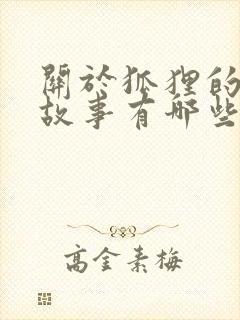 關於狐狸的
故事有哪些
高金素梅